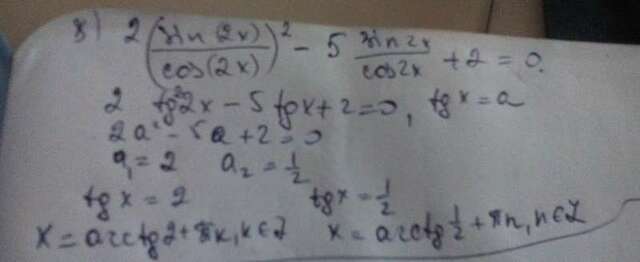 8) 2 (sin(2x)/cos(2x))² - 5 sin2x/cos2x + 2 = 0.
2 tg²2x - 5 tgx + 2 = 0, tgx = a
2a² - 5a + 2 = 0
a₁ = 2 a₂ = 1/2
tgx = 2 tgx = 1/2
x = arctg2 + πk, k∈Z x = arctg 1/2 + πn, n∈Z